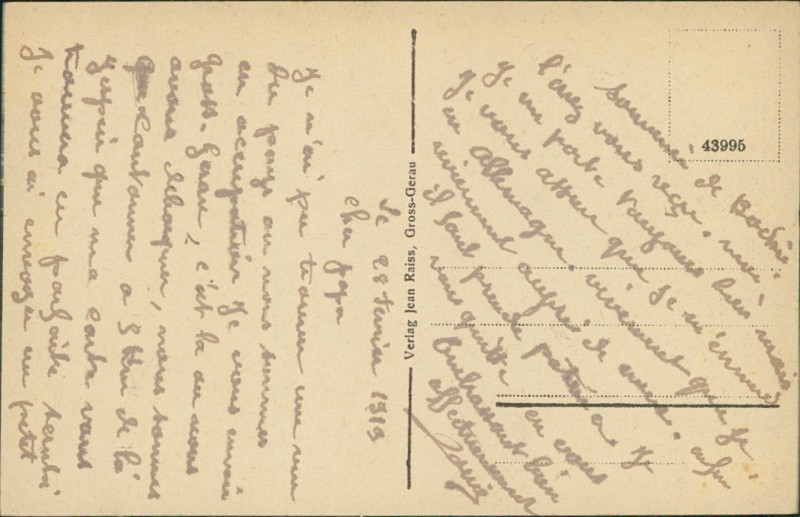 le 28 Fevrier 1919
cher papa
Je n'ai pu trouver une vue
du pays ou nous sommes
en occupation Je vous envoie
gross-Gerau, c'est la ou nous
avons debarquer, nous sommes
cantonner a 5 Km de là
J'espère que ma carte vous
trouvera en parfaite santé
Je vous ai envoyer un petit
souvenir de
l'avez vous reçu. moi
Je me porte toujours bien mais
Je vous assure que Je m'ennuie
en allemagne. vivement que Je
reviennent auprès de vous. enfin
il faut prendre patience Je
vous quitte en vous
Embrassant bien
affectueusement
Verlag Jean Raiss, Gross-Gerau
43995